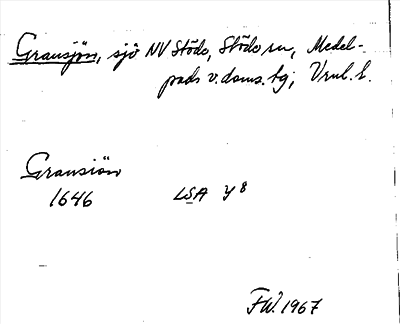 Gransjön, sjö NV Stöde, Stöde sn, Medel-
pads v. doms. tg; Vrnl. l.
Gransiön
1646 LSA Y 8
F.W. 1967